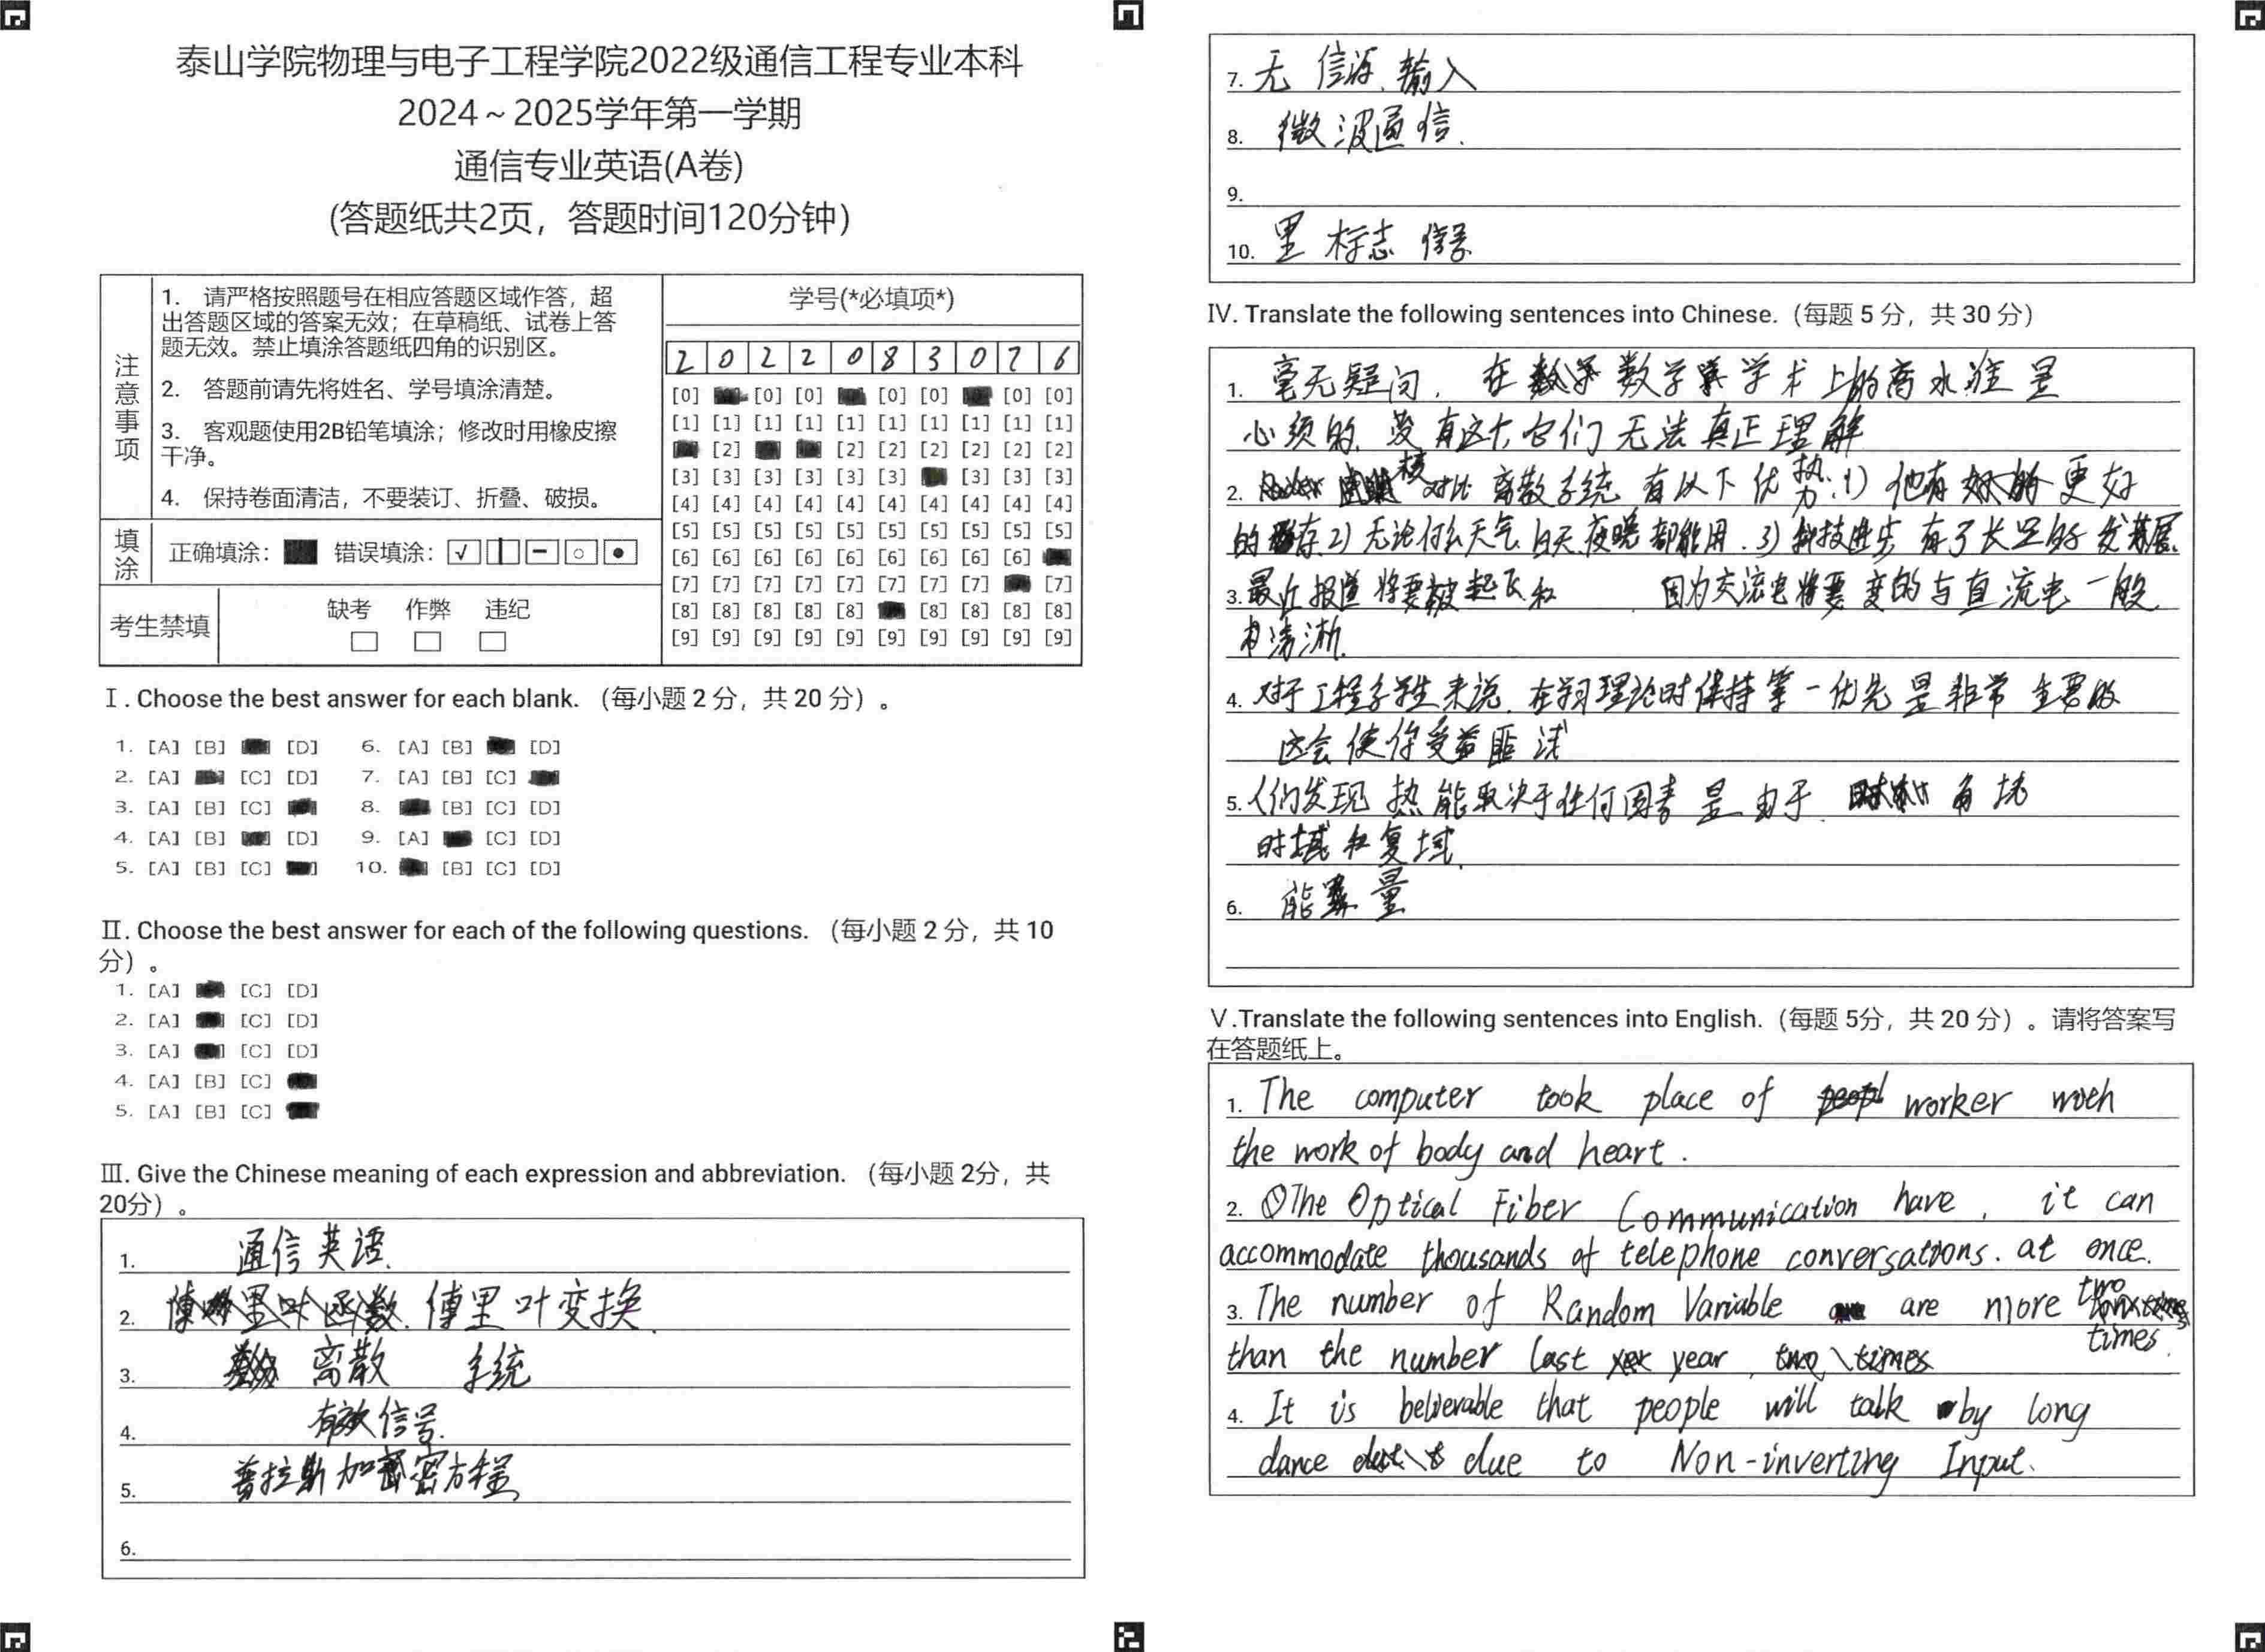 泰山学院物理与电子工程学院2022级通信工程专业本科
2024～2025学年第一学期
通信专业英语(A卷)
(答题纸共2页，答题时间120分钟)
注意事项
1. 请严格按照题号在相应答题区域作答，超
出答题区域的答案无效；在草稿纸、试卷上答
题无效。禁止填涂答题纸四角的识别区。
2. 答题前请先将姓名、学号填涂清楚。
3. 客观题使用2B铅笔填涂；修改时用橡皮擦
干净。
4. 保持卷面清洁，不要装订、折叠、破损。
填涂 正确填涂： 错误填涂：
考生禁填 缺考 作弊 违纪
学号(*必填项*)
2 0 2 2 0 8 3 0 7 6
[0] [0] [0] [0] [0] [0] [0]
[1] [1] [1] [1] [1] [1] [1] [1] [1] [1]
[2] [2] [2] [2] [2] [2] [2]
[3] [3] [3] [3] [3] [3] [3] [3] [3]
[4] [4] [4] [4] [4] [4] [4] [4] [4] [4]
[5] [5] [5] [5] [5] [5] [5] [5] [5] [5]
[6] [6] [6] [6] [6] [6] [6] [6] [6]
[7] [7] [7] [7] [7] [7] [7] [7] [7]
[8] [8] [8] [8] [8] [8] [8] [8] [8]
[9] [9] [9] [9] [9] [9] [9] [9] [9] [9]
Ⅰ. Choose the best answer for each blank. （每小题 2 分，共 20 分）。
1. [A] [B] [D] 6. [A] [B] [D]
2. [A] [C] [D] 7. [A] [B] [C]
3. [A] [B] [C] 8. [B] [C] [D]
4. [A] [B] [D] 9. [A] [C] [D]
5. [A] [B] [C] 10. [B] [C] [D]
Ⅱ. Choose the best answer for each of the following questions. （每小题 2 分，共 10
分）。
1. [A] [C] [D]
2. [A] [C] [D]
3. [A] [C] [D]
4. [A] [B] [C]
5. [A] [B] [C]
Ⅲ. Give the Chinese meaning of each expression and abbreviation. （每小题 2分，共
20分）。
1. 通信英语.
2. 傅里叶变换.
3. 离散 系统
4. 有效信号.
5. 普拉斯加密方程
6.
7. 无 信源.输入
8. 微波通信.
9.
10. 里 标志 信号
Ⅳ. Translate the following sentences into Chinese.（每题 5 分，共 30 分）
1. 毫无疑问，在数学学术上的高水准是
必须的 没有这大它们无法真正理解
2. 对比 离散系统 有以下优势.1) 他有更好
的 存.2) 无论什么天气.白天.夜晚都能用.3) 科技进步 有了长足的发展.
3. 最近报道将要被起飞和 因为交流电将要变的与直流电一般
清淅.
4. 对于工程系学生来说.在学习理论时保持第一优先是非常重要的
这会使你受益匪浅
5. 人们发现 热能取决于任何因素 是由于
时域和复域.
6. 能 量
Ⅴ.Translate the following sentences into English.（每题 5分，共 20 分）。请将答案写
在答题纸上。
1. The computer took place of worker with
the work of body and heart.
2. The Optical Fiber Communication have , it can
accommodate thousands of telephone conversations. at once.
3. The number of Random Variable are more two times.
than the number last year
4. It is believable that people will talk by long
dance due to Non-inverting Input.